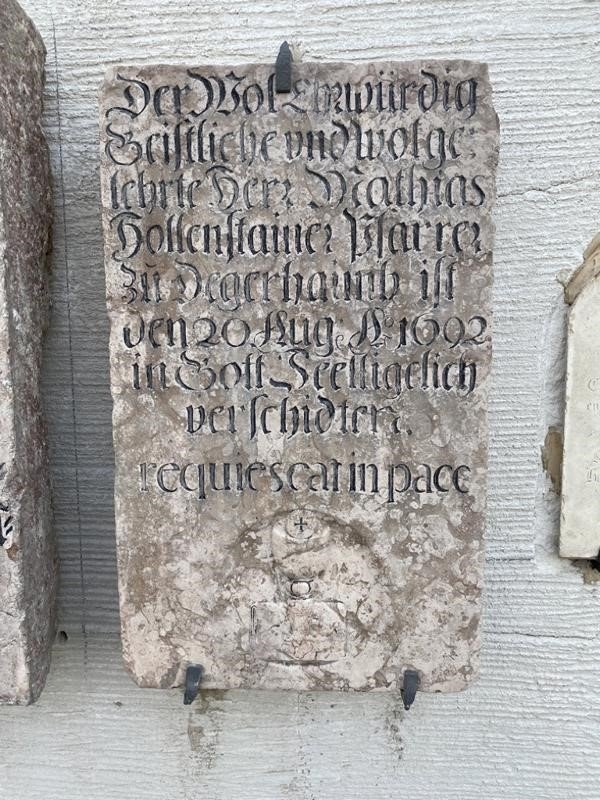 Der Wol Ehrwürdig
Geistliche vnd wolge:
lehrte Herr Mathias
Hollenstainer Pfarrer
zu Degerhaimb ist
den 20 Aug: Aᵒ 1692
in Gott Seelligelich
verschidten.
requiescat in pace